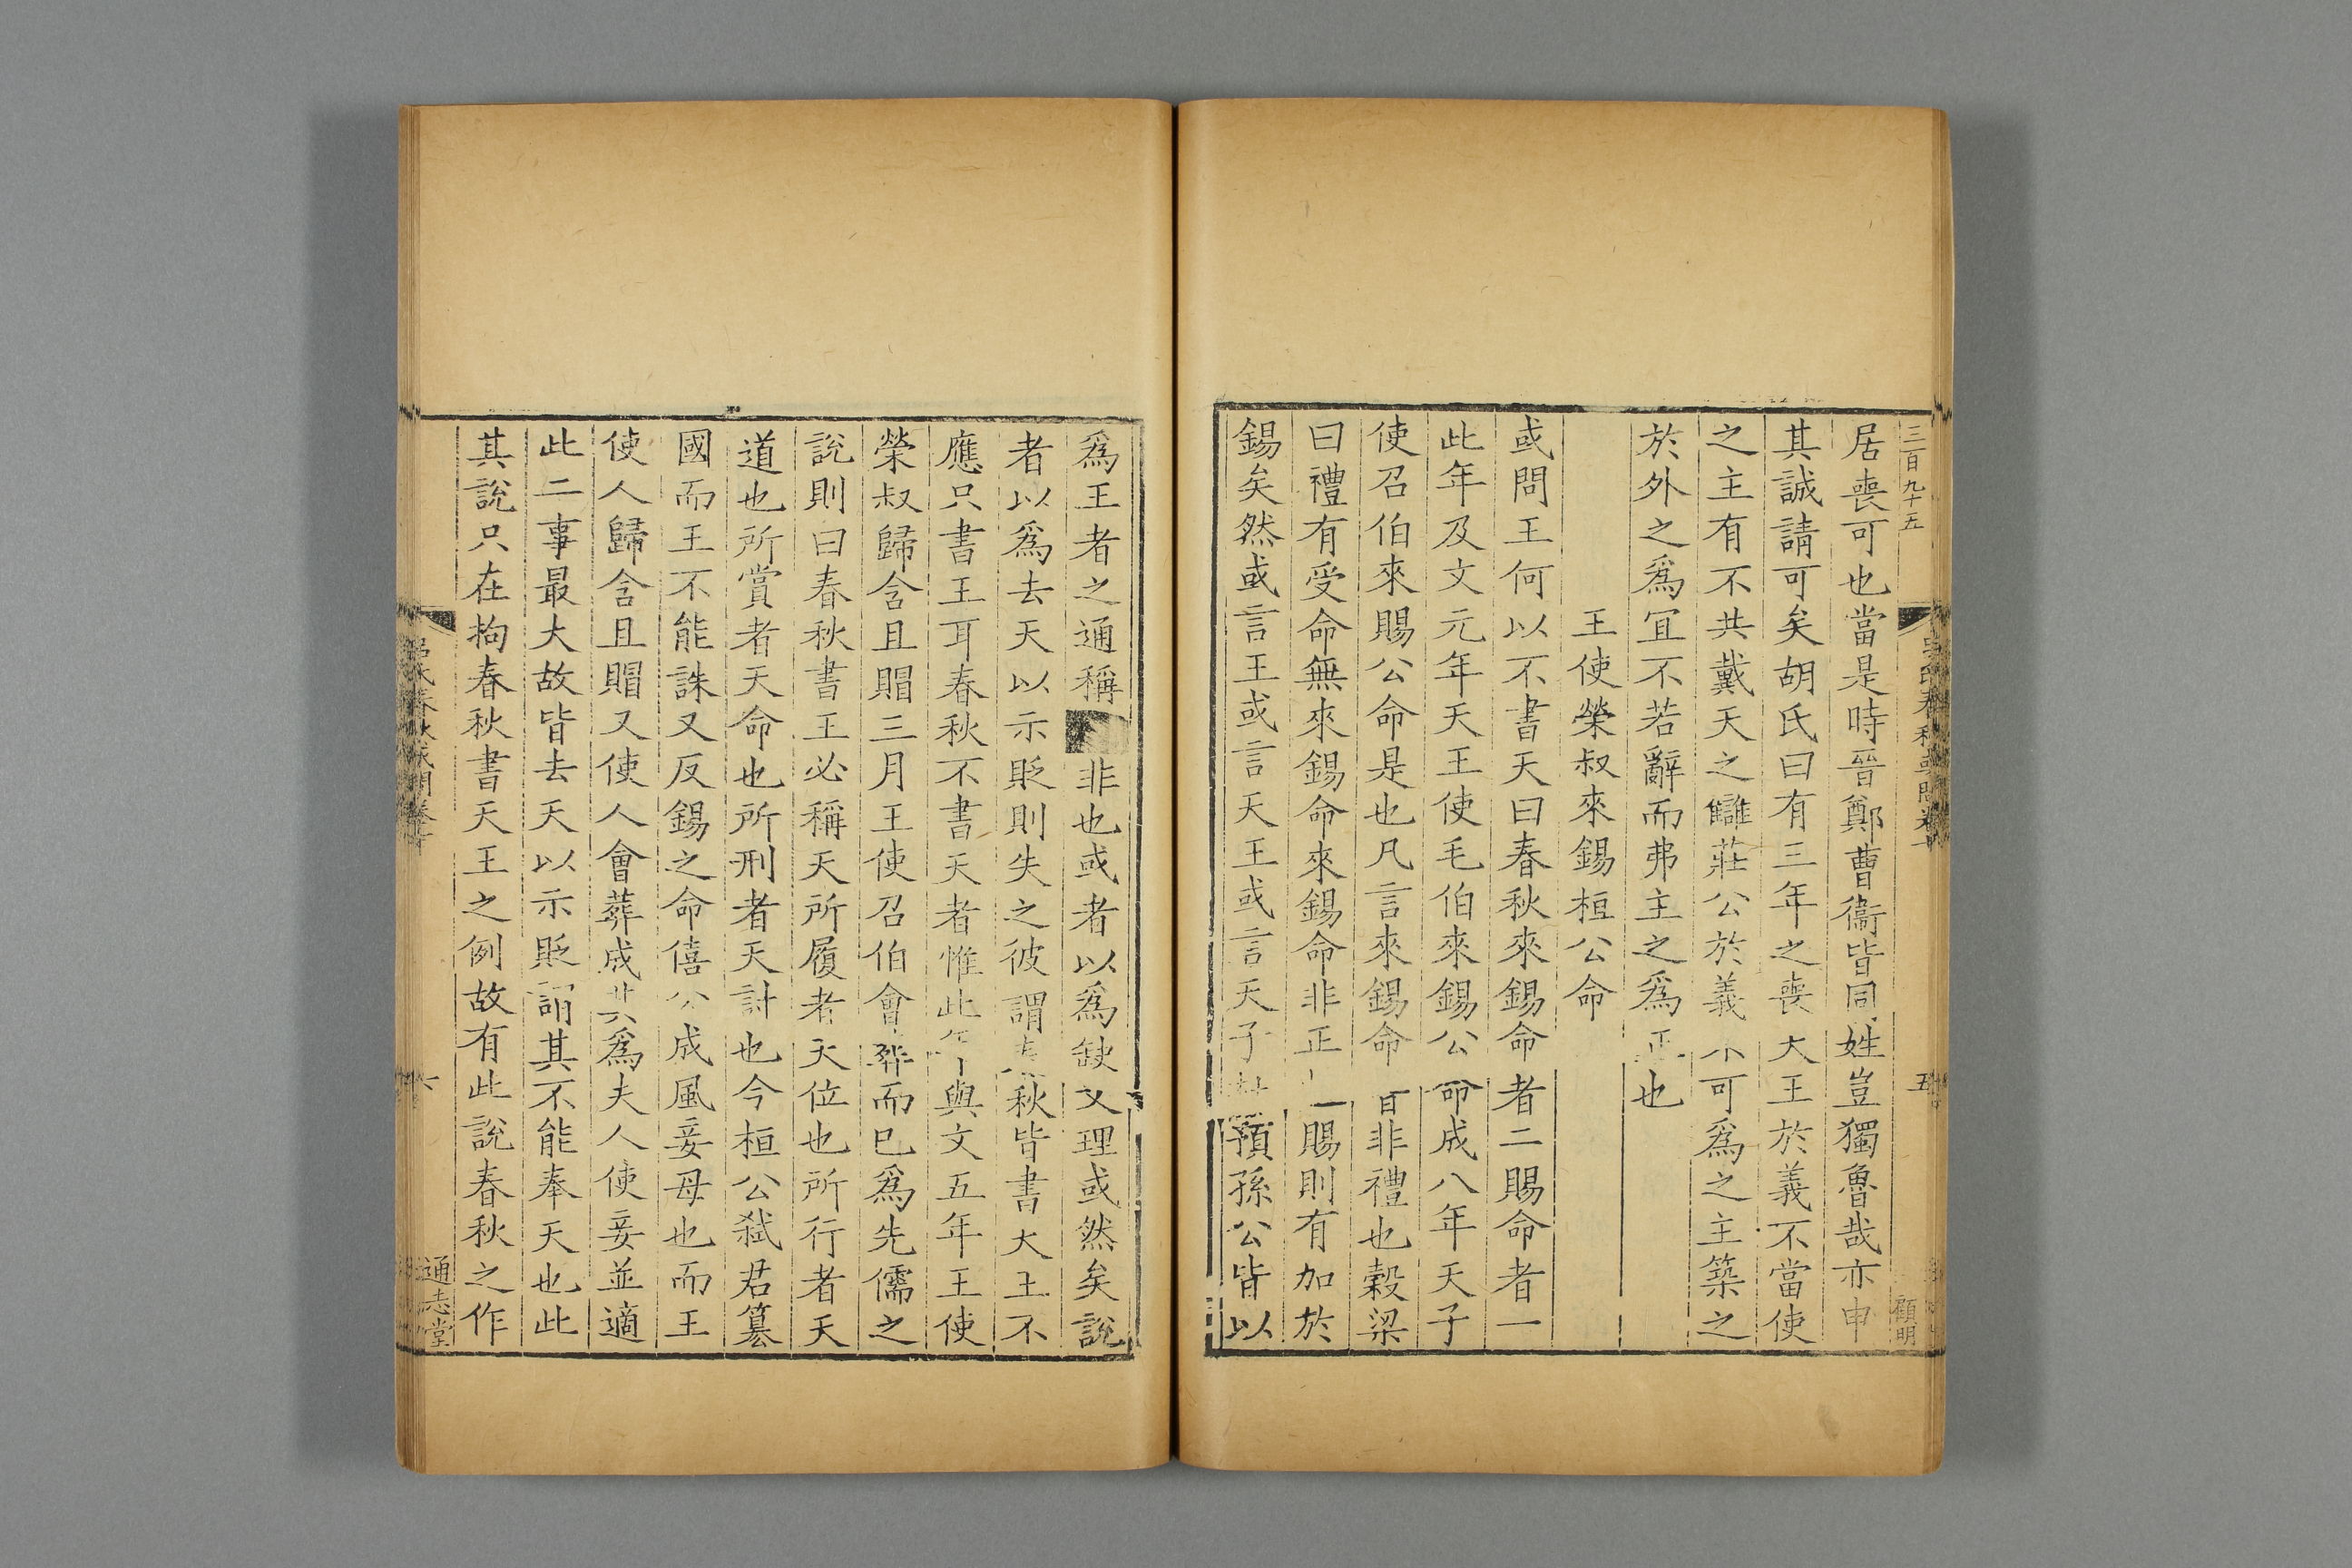 三百九十五
居喪可也當是時晉鄭曹衞皆同姓豈獨魯哉亦申
其誠請可矣胡氏曰有三年之喪天王於義不當使
之主有不共戴天之讎莊公於義不可爲之主築之
於外之爲宜不若辭而弗主之爲正也
王使榮叔來錫桓公命
或問王何以不書天曰春秋來錫命者二賜命者一
此年及文元年天王使毛伯來錫公命成八年天子
使召伯來賜公命是也凡言來錫命皆非禮也穀梁
曰禮有受命無來錫命來錫命非正也賜則有加於
錫矣然或言王或言天王或言天子杜預孫公皆以
五
顧明
爲王者之通稱非也或者以爲缺文理或然矣說
者以爲去天以示貶則失之彼謂春秋皆書天王不
應只書王耳春秋不書天者惟此年與文五年王使
榮叔歸含且賵三月王使召伯會葬而已爲先儒之
說則曰春秋書王必稱天所履者天位也所行者天
道也所賞者天命也所刑者天討也今桓公弑君篡
國而王不能誅又反錫之命僖公成風妾母也而王
使人歸含且賵又使人會葬成其爲夫人使妾並適
此二事最大故皆去天以示貶謂其不能奉天也此
其說只在拘春秋書天王之例故有此說春秋之作
六
通志堂